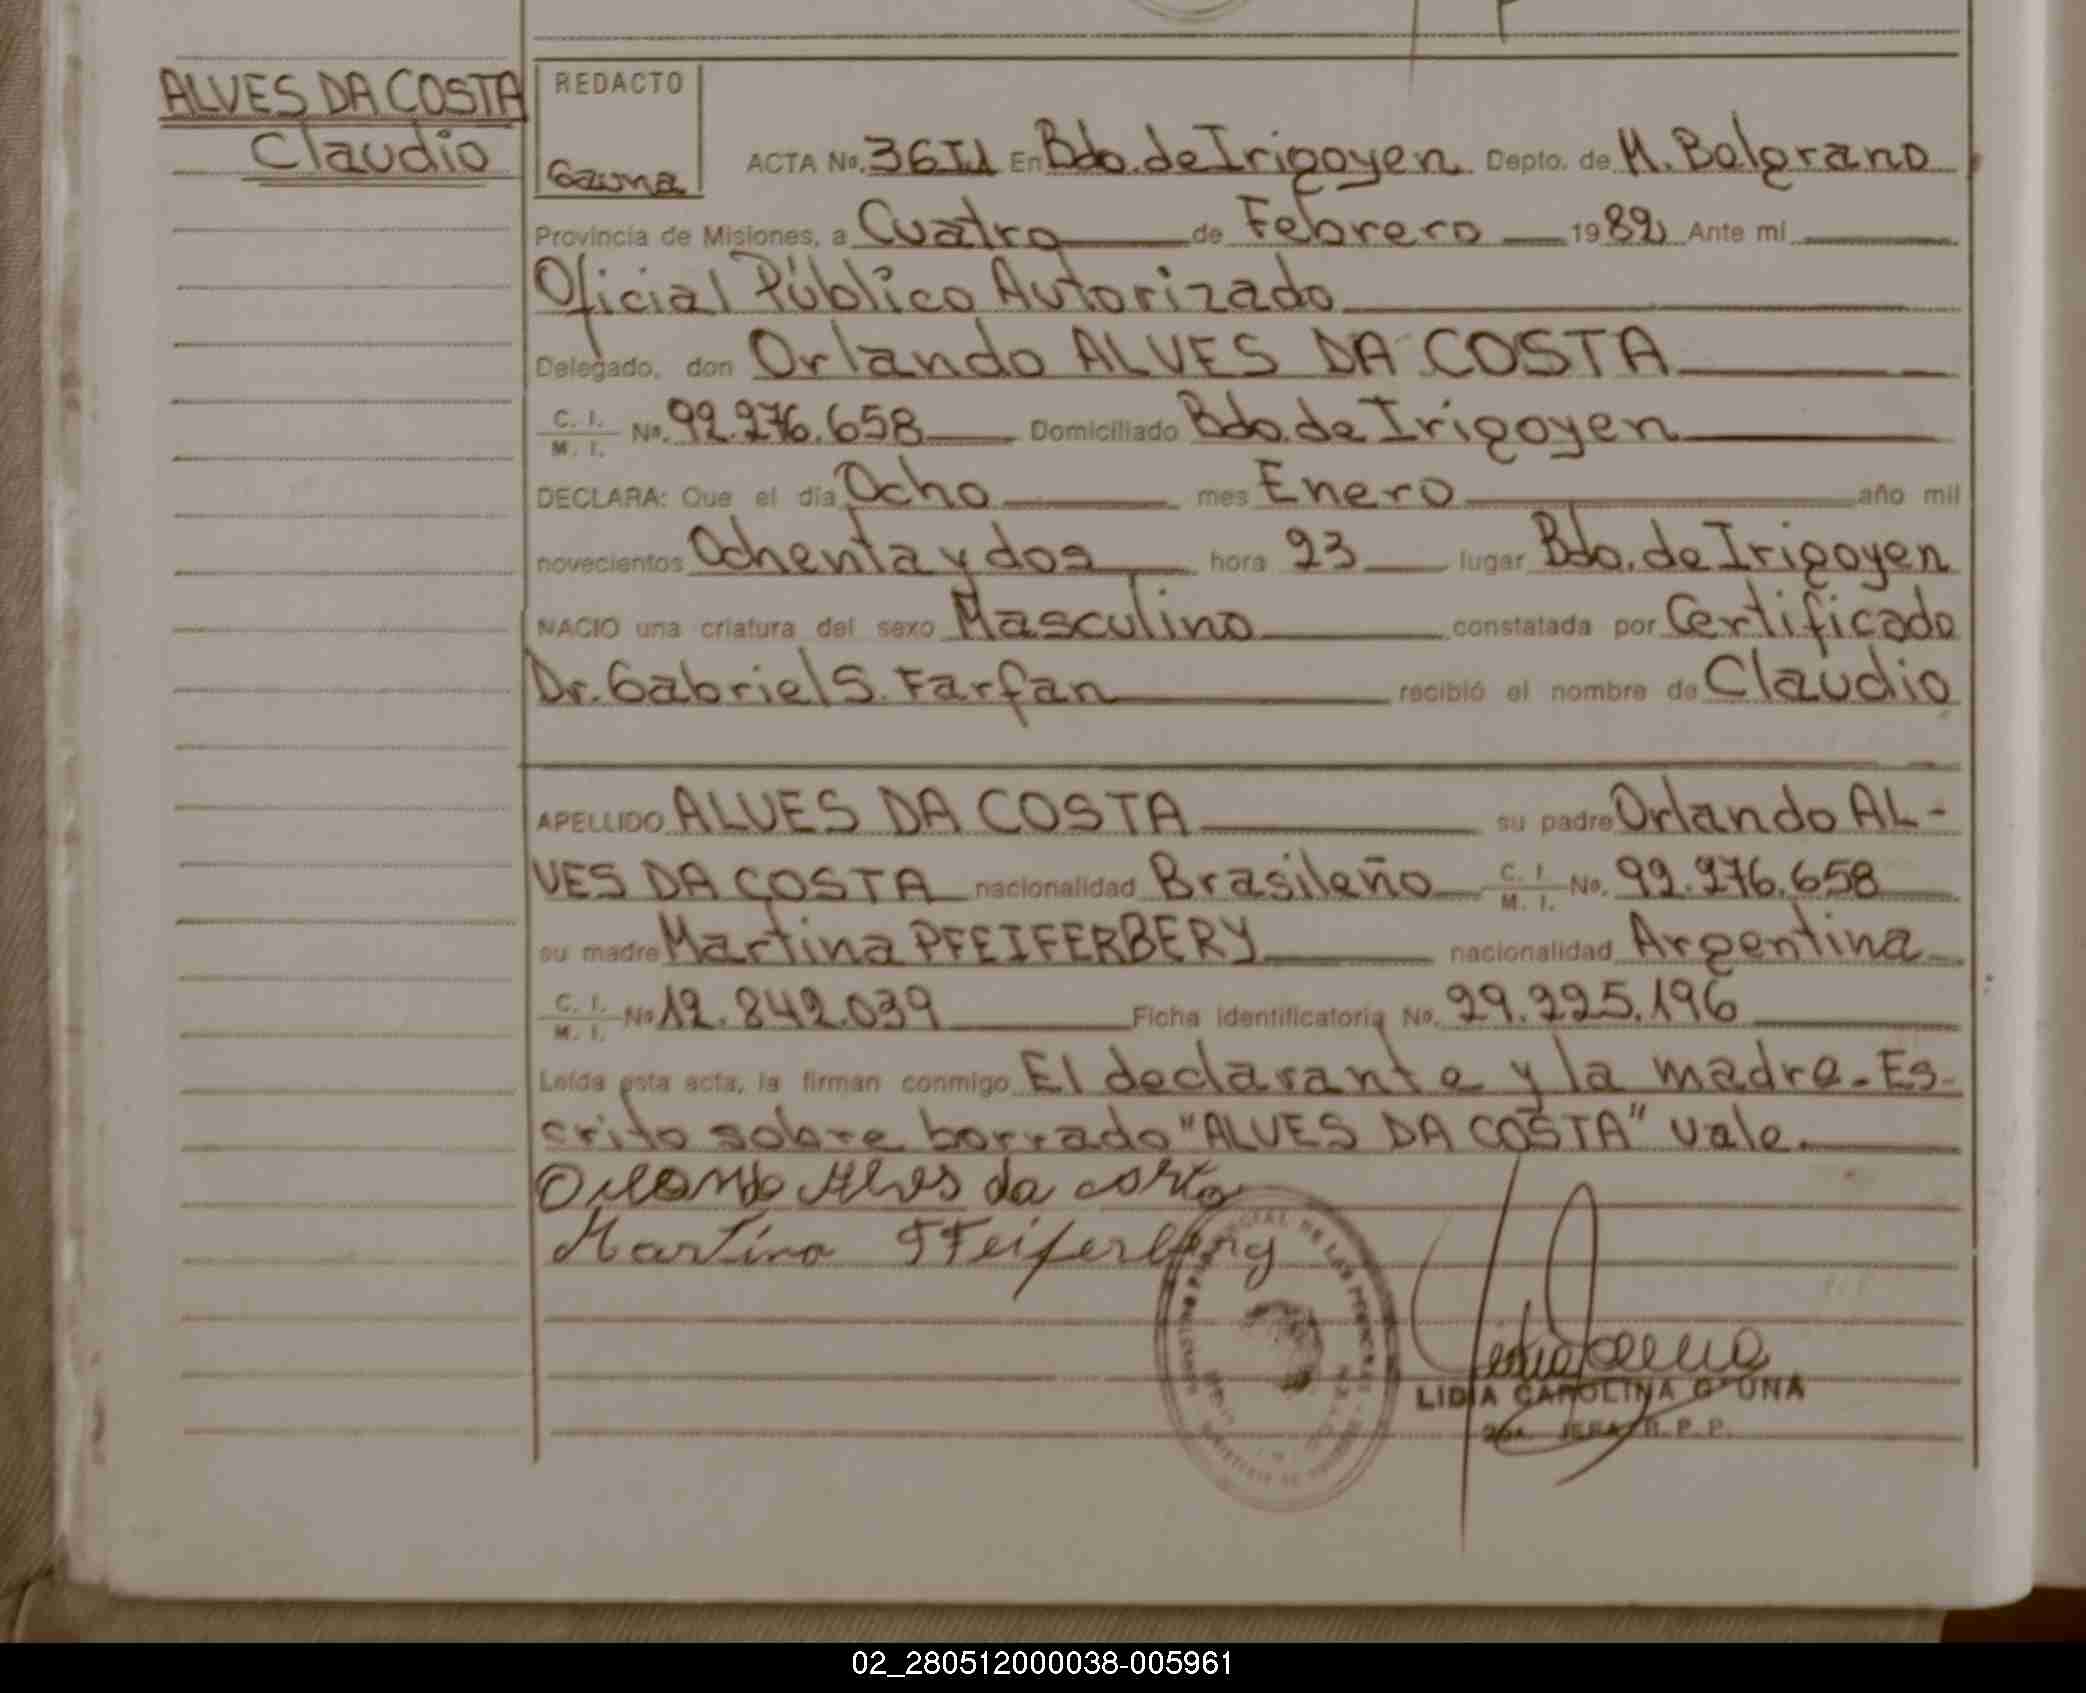 ALVES DA COSTA
Claudio
REDACTO
Gauna
ACTA No. 36 II En Bdo. de Irigoyen Depto. de M. Belgrano
Provincia de Misiones, a Cuatro de Febrero 1982 Ante mí
Oficial Público Autorizado
Delegado, don Orlando ALVES DA COSTA
C. I. M. I. No. 92.276.658 Domiciliado Bdo. de Irigoyen
DECLARA: Que el día Ocho mes Enero año mil
novecientos Ochenta y dos hora 23 lugar Bdo. de Irigoyen
NACIO una criatura del sexo Masculino constatada por Certificado
Dr. Gabriel S. Farfan recibió el nombre de Claudio
APELLIDO ALVES DA COSTA su padre Orlando AL-
VES DA COSTA nacionalidad Brasileño C. I. M. I. No. 92.276.658
su madre Martina PFEIFERBERY nacionalidad Argentina
C. I. M. I. No 12.842.039 Ficha identificatoria No. 29.225.196
Leída esta acta, la firman conmigo El declarante y la madre. Es-
crito sobre borrado "ALVES DA COSTA" vale.
Orlando Alves da costa
Martina
LIDIA CAROLINA GAUNA
JEFA R. P. P.
02_280512000038-005961